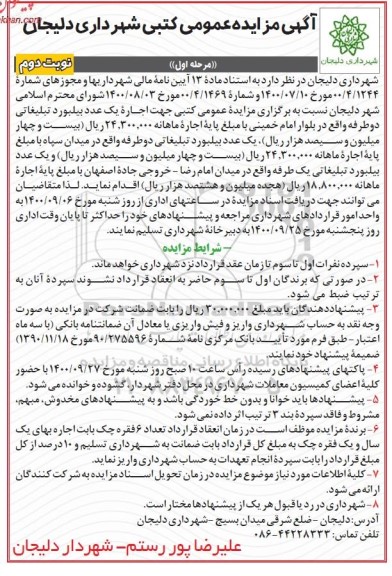 آگهی مزایده عمومی کتبی شهرداری دلیجان
شهرداری دلیجان
((مرحله اول))
نوبت دوم
شهرداری دلیجان در نظر دارد به استناد مادۀ ۱۳ آیین نامۀ مالی شهرداریها و مجوزهای شمارۀ
۰۰/۴/۱۲۴۴ مورخ ۱۴۰۰/۰۷/۱۰ و شمارۀ ۰۰/۴/۱۴۶۹ مورخ ۱۴۰۰/۰۸/۰۳ شورای محترم اسلامی
شهر دلیجان نسبت به برگزاری مزایدۀ عمومی کتبی جهت اجارۀ یک عدد بیلبورد تبلیغاتی
دوطرفه واقع در بلوار امام خمینی با مبلغ پایۀ اجارۀ ماهانه ۲۴.۳۰۰.۰۰۰ ریال (بیست و چهار
میلیون و سیصد هزار ریال)، یک عدد بیلبورد تبلیغاتی دوطرفه واقع در میدان سپاه با مبلغ
پایۀ اجارۀ ماهانه ۲۴.۳۰۰.۰۰۰ ریال (بیست و چهار میلیون و سیصد هزار ریال) و یک عدد
بیلبورد تبلیغاتی یک طرفه واقع در میدان امام رضا - خروجی جادۀ اصفهان با مبلغ پایۀ اجارۀ
ماهانه ۱۸.۸۰۰.۰۰۰ ریال (هجده میلیون و هشتصد هزار ریال) اقدام نماید. لذا متقاضیان
می توانند جهت دریافت اسناد مزایده در ساعتهای اداری از روز شنبه مورخ ۱۴۰۰/۰۹/۰۶ به
واحد امور قراردادهای شهرداری مراجعه و پیشنهادهای خود را حداکثر تا پایان وقت اداری
روز پنجشنبه مورخ ۱۴۰۰/۰۹/۲۵ به دبیرخانۀ شهرداری تسلیم نمایند.
- شرایط مزایده
۱- سپرده نفرات اول تا سوم تا زمان عقد قرارداد نزد شهرداری خواهد ماند.
۲- در صورتی که برندگان اول تا سوم حاضر به انعقاد قرارداد نشوند سپردۀ آنان به
ترتیب ضبط می شود.
۳- پیشنهاددهندگان باید مبلغ ۳۰.۰۰۰.۰۰۰ ریال را بابت ضمانت شرکت در مزایده به صورت
وجه نقد به حساب شهرداری واریز و فیش واریزی یا معادل آن ضمانتنامه بانکی (با سه ماه
اعتبار - طبق فرم مورد تأیید بانک مرکزی نامۀ شمارۀ ۹۰/۲۷۵۵۹۶ مورخ ۱۳۹۰/۱۱/۱۸)
ضمیمۀ پیشنهاد خود نمایند.
۴- پاکتهای پیشنهادهای رسیده رأس ساعت ۱۰ صبح روز شنبه مورخ ۱۴۰۰/۰۹/۲۷ با حضور
کلیۀ اعضای کمیسیون معاملات شهرداری در محل دفتر شهردار گشوده و خوانده می شود.
۵- پیشنهادها باید خوانا و بدون خط خوردگی باشد و به پیشنهادهای مخدوش، مبهم،
مشروط و فاقد سپردۀ بند ۳ ترتیب اثر داده نمی شود.
۶- برندۀ مزایده موظف است در زمان انعقاد قرارداد تعداد ۶ فقره چک بابت اجاره بهای یک
سال و یک فقره چک به مبلغ کل قرارداد بابت ضمانت به شهرداری تسلیم و ۱۰ درصد از کل
مبلغ قرارداد را بابت سپردۀ انجام تعهدات به حساب شهرداری واریز نماید.
۷- کلیۀ اطلاعات مورد نیاز موضوع مزایده در زمان تحویل اسناد مزایده به شرکت کنندگان
ارائه می شود.
۸- شهرداری در رد یا قبول هر یک از پیشنهادها مختار است.
آدرس: دلیجان - ضلع شرقی میدان بسیج - شهرداری دلیجان
شماره تماس: ۴۴۲۲۸۳۳۳-۰۸۶
علیرضا پور رستم- شهردار دلیجان